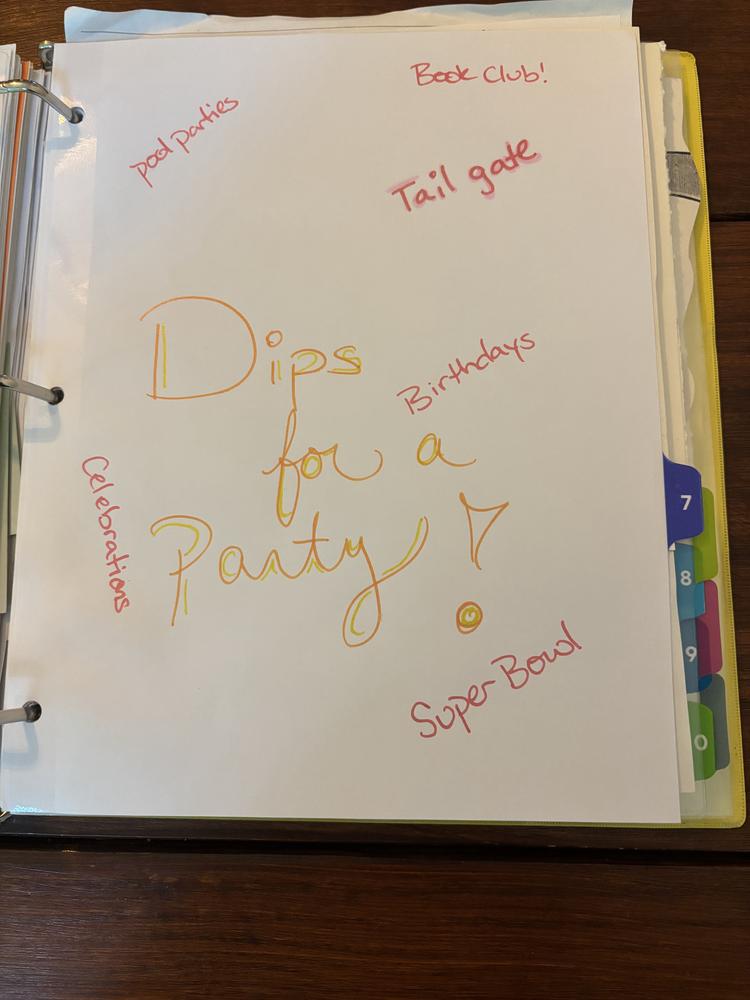 Book Club!
pool parties
Tail gate
Dips
Birthdays
for a
Celebrations
Party!
Super Bowl
7
8
9
0